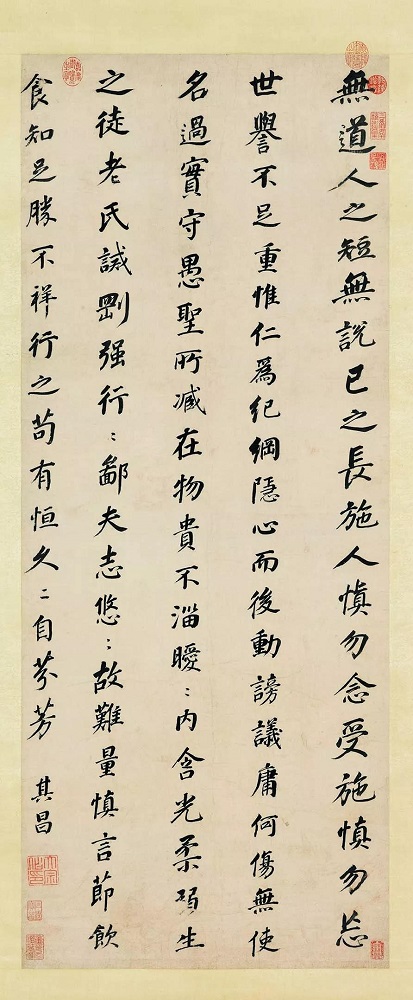 無道人之短無說己之長施人慎勿念受施慎勿忘
世譽不足重惟仁為紀綱隱心而後動謗議庸何傷無使
名過實守愚聖所臧在物貴不淄曖〻內含光柔弱生
之徒老氏誡剛强行〻鄙夫志悠〻故難量慎言節飲
食知足勝不祥行之苟有恒久〻自芬芳 其昌